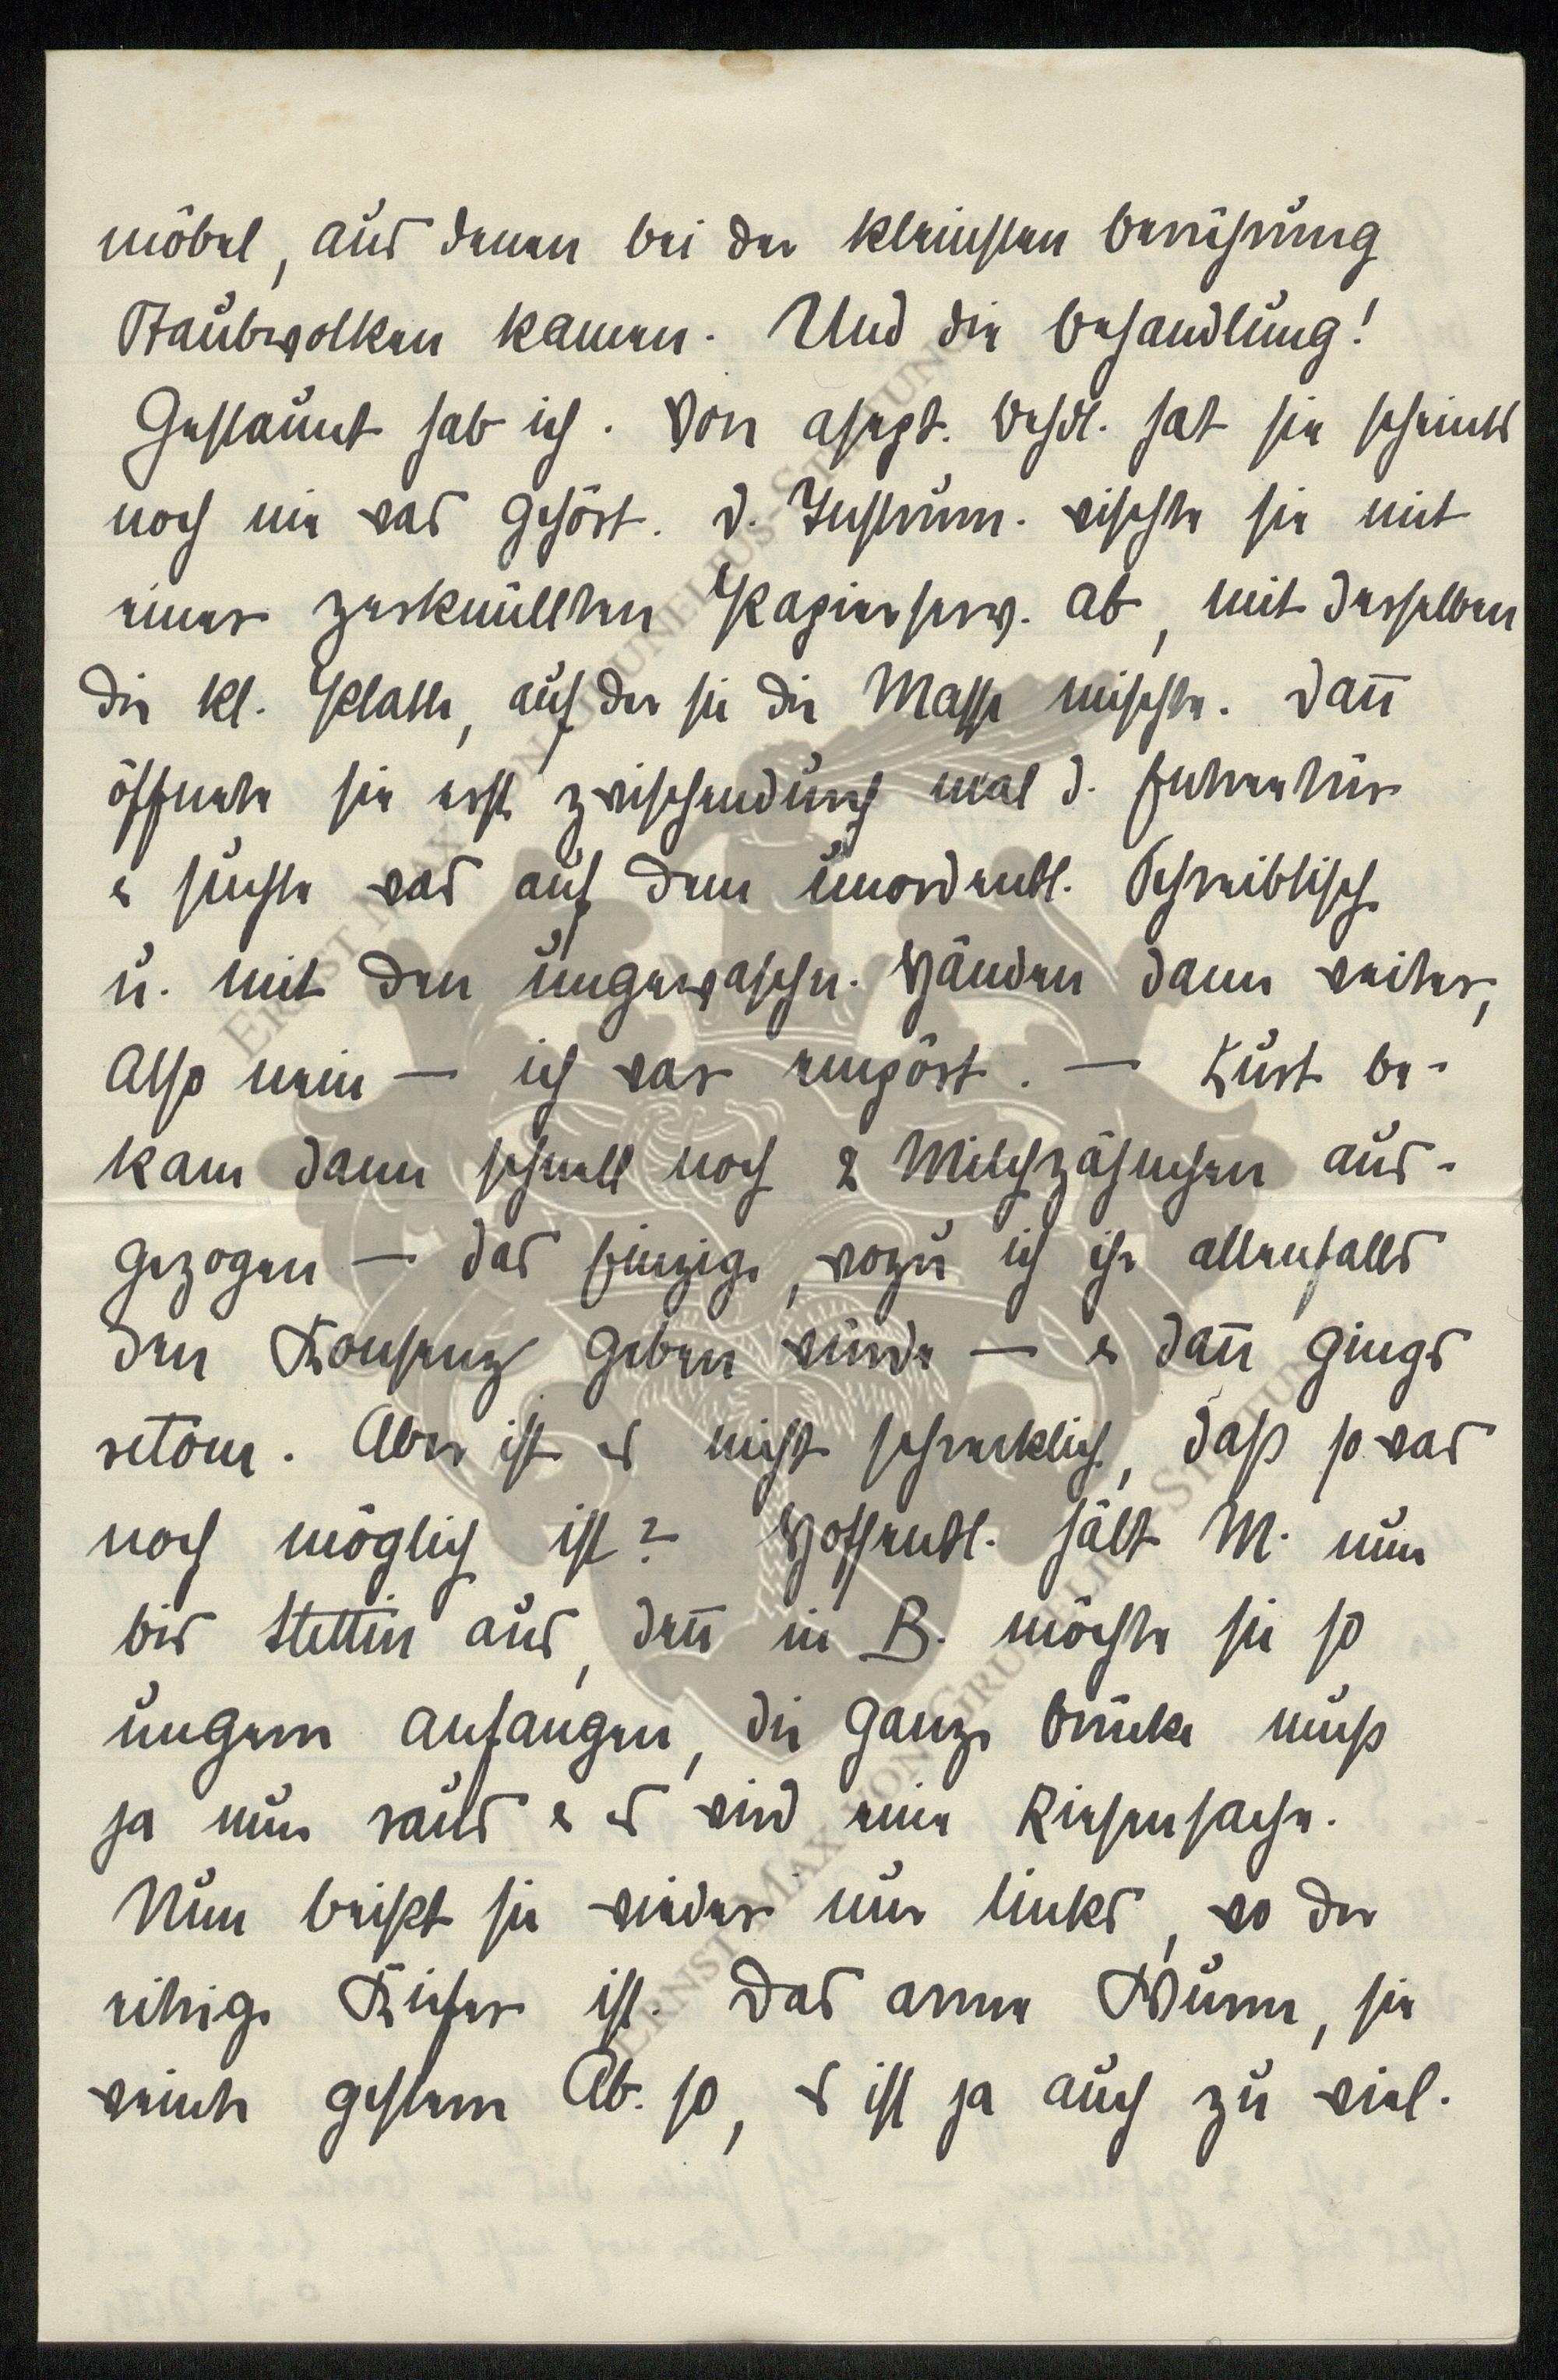 möbel, aus denen bei der kleinsten berührung
Staubwolken kamen. Und die behandlung!
Gestaunt hab ich. Von asept. behdl. hat sie scheints
noch nie was gehört. d. Instrum. wischte sie mit
einer zerknüllten Papierserv. ab, mit derselben
die kl. Platte, auf der sie die Masse mischte. dan̄
öffnete sie erst zwischendurch mal d. Entreetür
& suchte was auf dem unordentl. Schreibtisch
u. mit den ungewaschn. Händen dann weiter,
Also nein — ich war empört. — Kurt be-
kam dann schnell noch 2 Milchzähnchen aus-
gezogen — das Einzige, wozu ich ihr allenfalls
den Konsenz geben würde — & dan̄ gings
retour. Aber ist es nicht schrecklich, daß so was
noch möglich ist? Hoffentl. hält M. nun
bis Stettin aus, den̄ in B. möchte sie so
ungern anfangen, die ganze brücke muß
ja nun raus & es wird eine Riesensache.
Nun beißt sie wieder nur links, wo der
eitrige Kiefer ist. Das arme Wurm, sie
weinte gestern Ab. so, es ist ja auch zu viel.
ERNST MAX VON GRUNELIUS-STIFTUNG
ERNST MAX VON GRUNELIUS-STIFTUNG